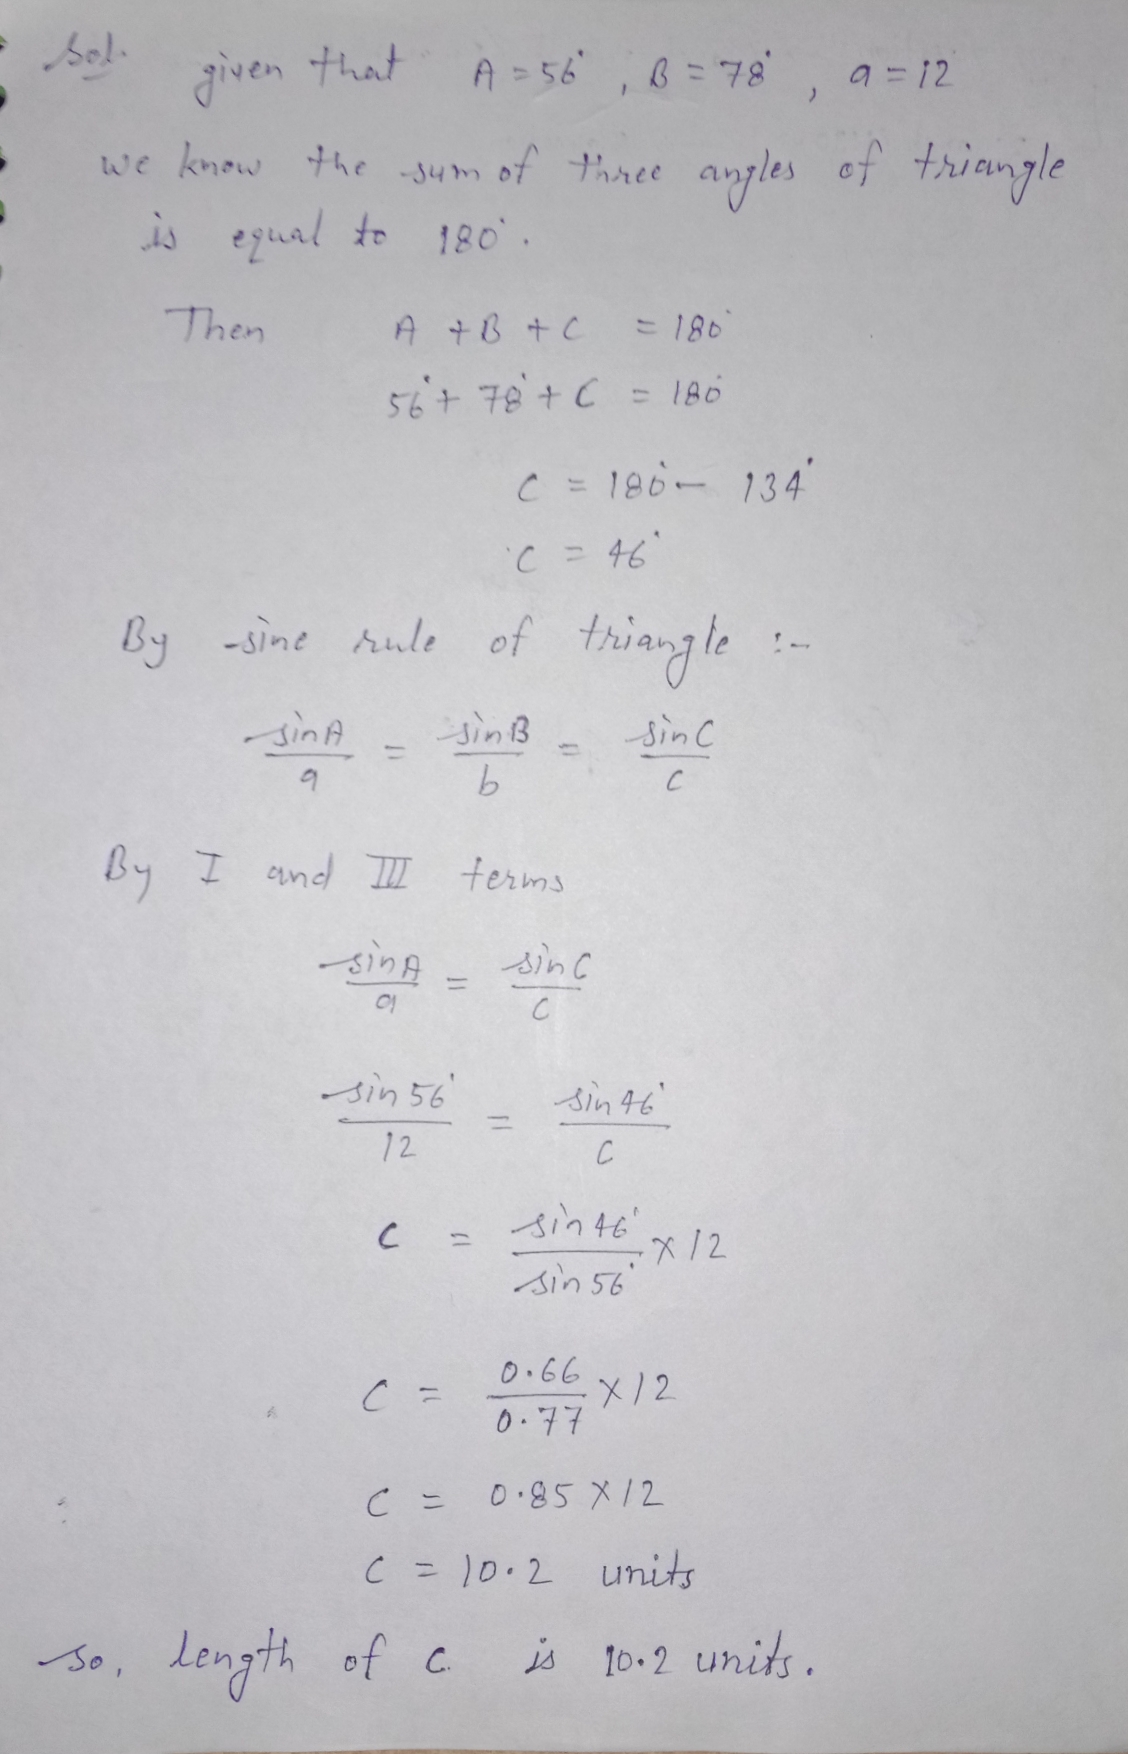 Sol. given that A = 56°, B = 78°, a = 12
we know the sum of three angles of triangle
is equal to 180°.
Then A + B + C = 180°
56° + 78° + C = 180°
C = 180° - 134°
C = 46°
By sine rule of triangle :-
sinA/a = sinB/b = sinC/c
By I and III terms
sinA/a = sinC/c
sin56°/12 = sin46°/c
c = sin46°/sin56° × 12
c = 0.66/0.77 × 12
c = 0.85 × 12
c = 10.2 units
so, length of c is 10.2 units.